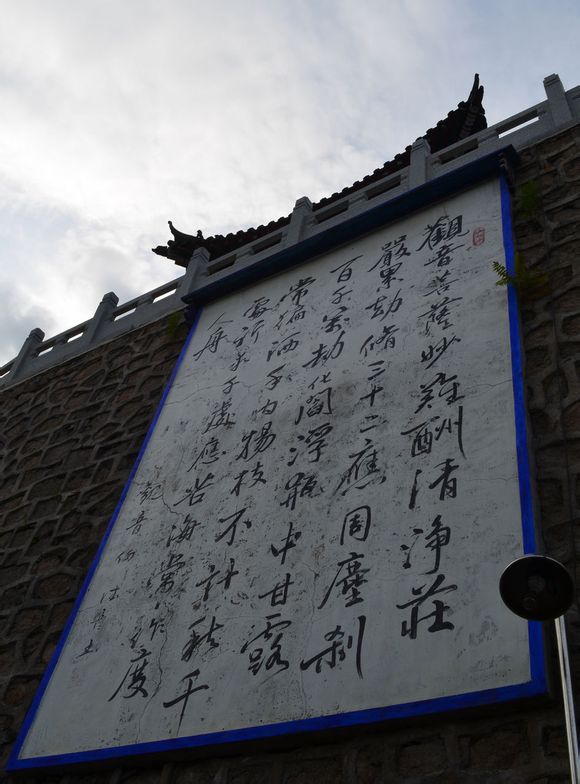 觀音菩薩妙難酬清淨莊
嚴累劫修三十二應周塵刹
百千萬劫化閻浮瓶中甘露
常徧洒手内楊枝不計秋千
處祈求千處應苦海常作度
舟
觀音偈